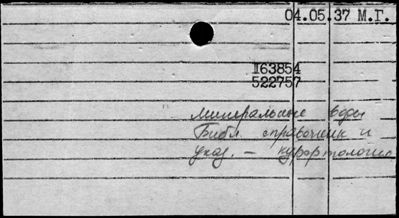 04.05.37 М.Г.
II63854
522757
Минеральные воды
Библ. справочник и
указ. – курортология